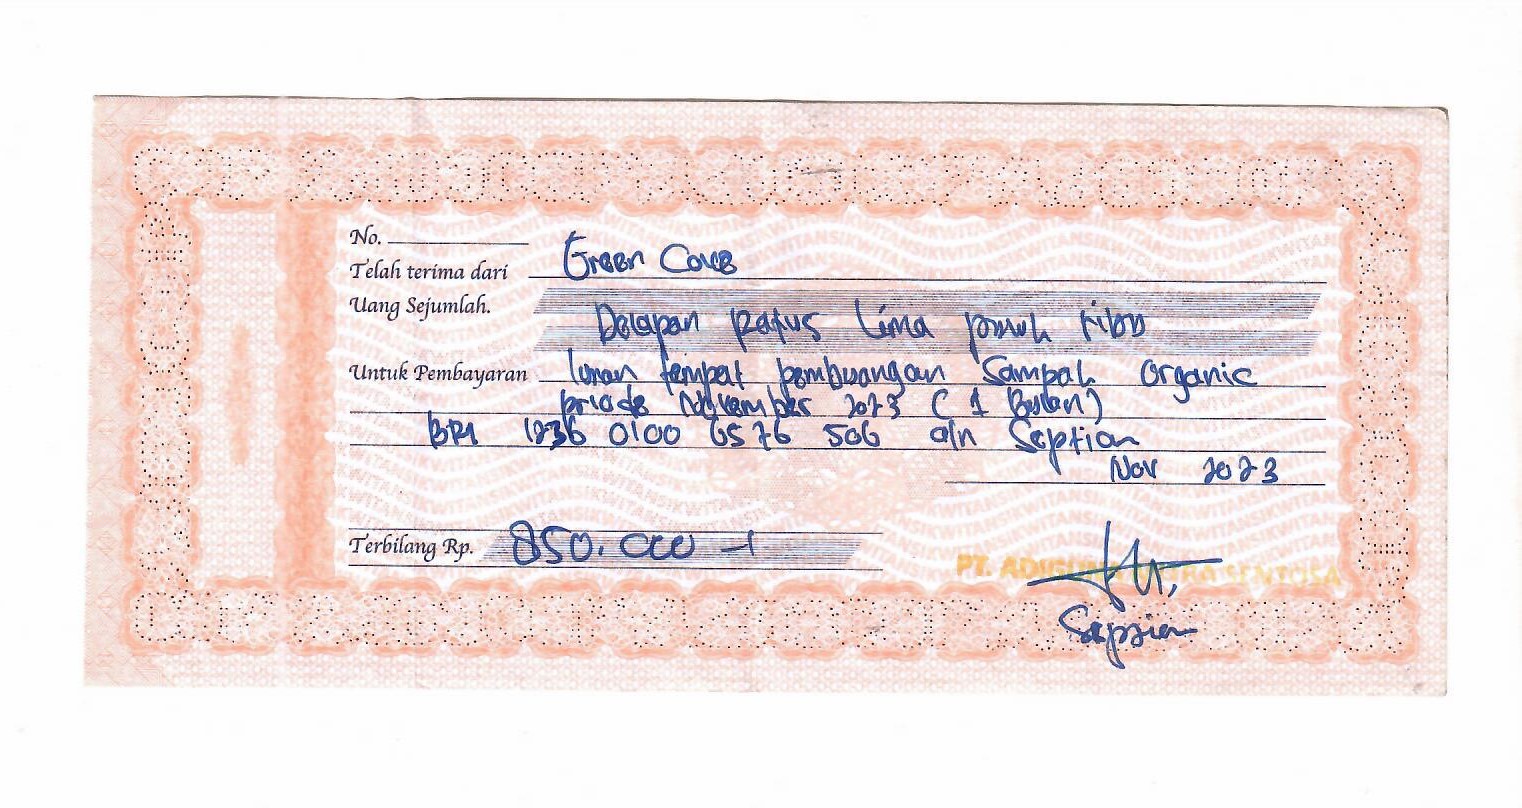 No.
Telah terima dari Green Cove
Uang Sejumlah. Delapan ratus Lima puluh ribu
Untuk Pembayaran Iuran tempat pembuangan Sampah Organic
priode November 2023 (1 Bulan)
BRI 1236 0100 6576 506 a/n Septian
Nov 2023
Terbilang Rp. 850.000 -
PT. SENTOSA
Septian